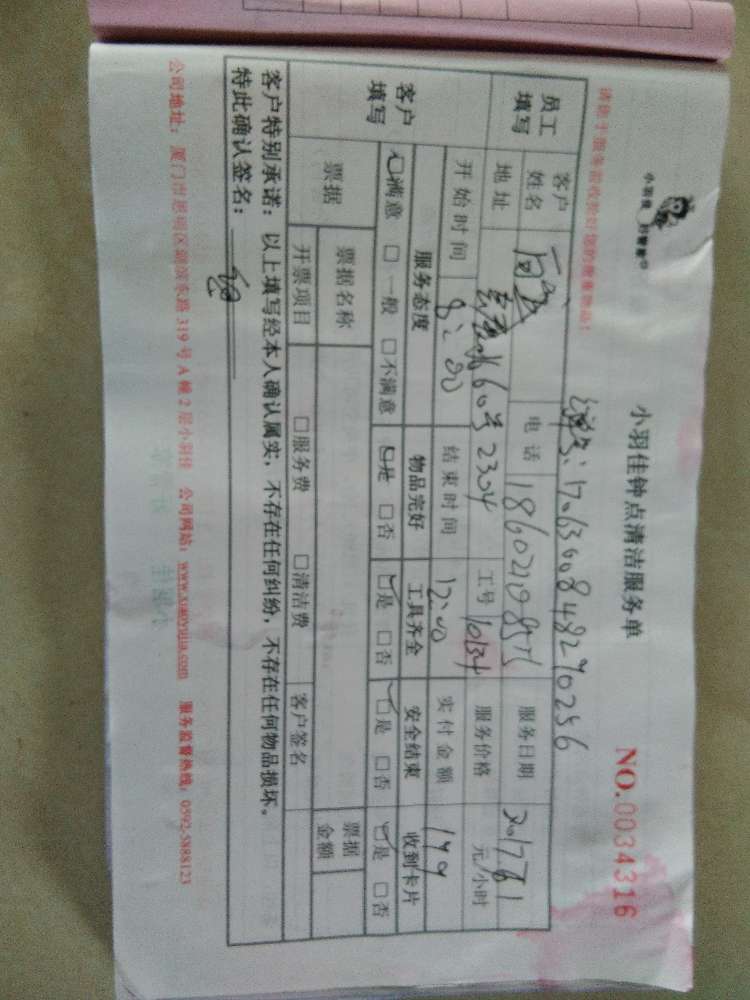 小羽佳 好管家
小羽佳钟点清洁服务单
NO.0034316
请您于服务前收验好您的贵重物品！
单号：17063008482970256
员工填写
客户姓名
电话 18602198575
服务日期 2017.8.1
地址 60号2304
工号 10134
服务价格 元/小时
开始时间 8:00
结束时间 12:00
实付金额 149
客户填写
服务态度 物品完好 工具齐全 安全结束 收到卡片
☑满意 □一般 □不满意 ☑是 □否 ☑是 □否 ☑是 □否 ☑是 □否
票据
票据名称
票据金额
开票项目 □服务费 □清洁费 客户签名
客户特别承诺：以上填写经本人确认属实，不存在任何纠纷，不存在任何物品损坏。
特此确认签名：
公司地址：厦门市思明区湖滨东路319号A幢2层小羽佳 公司网站：www.xiaoyujia.com 服务监督热线：0592-5888123